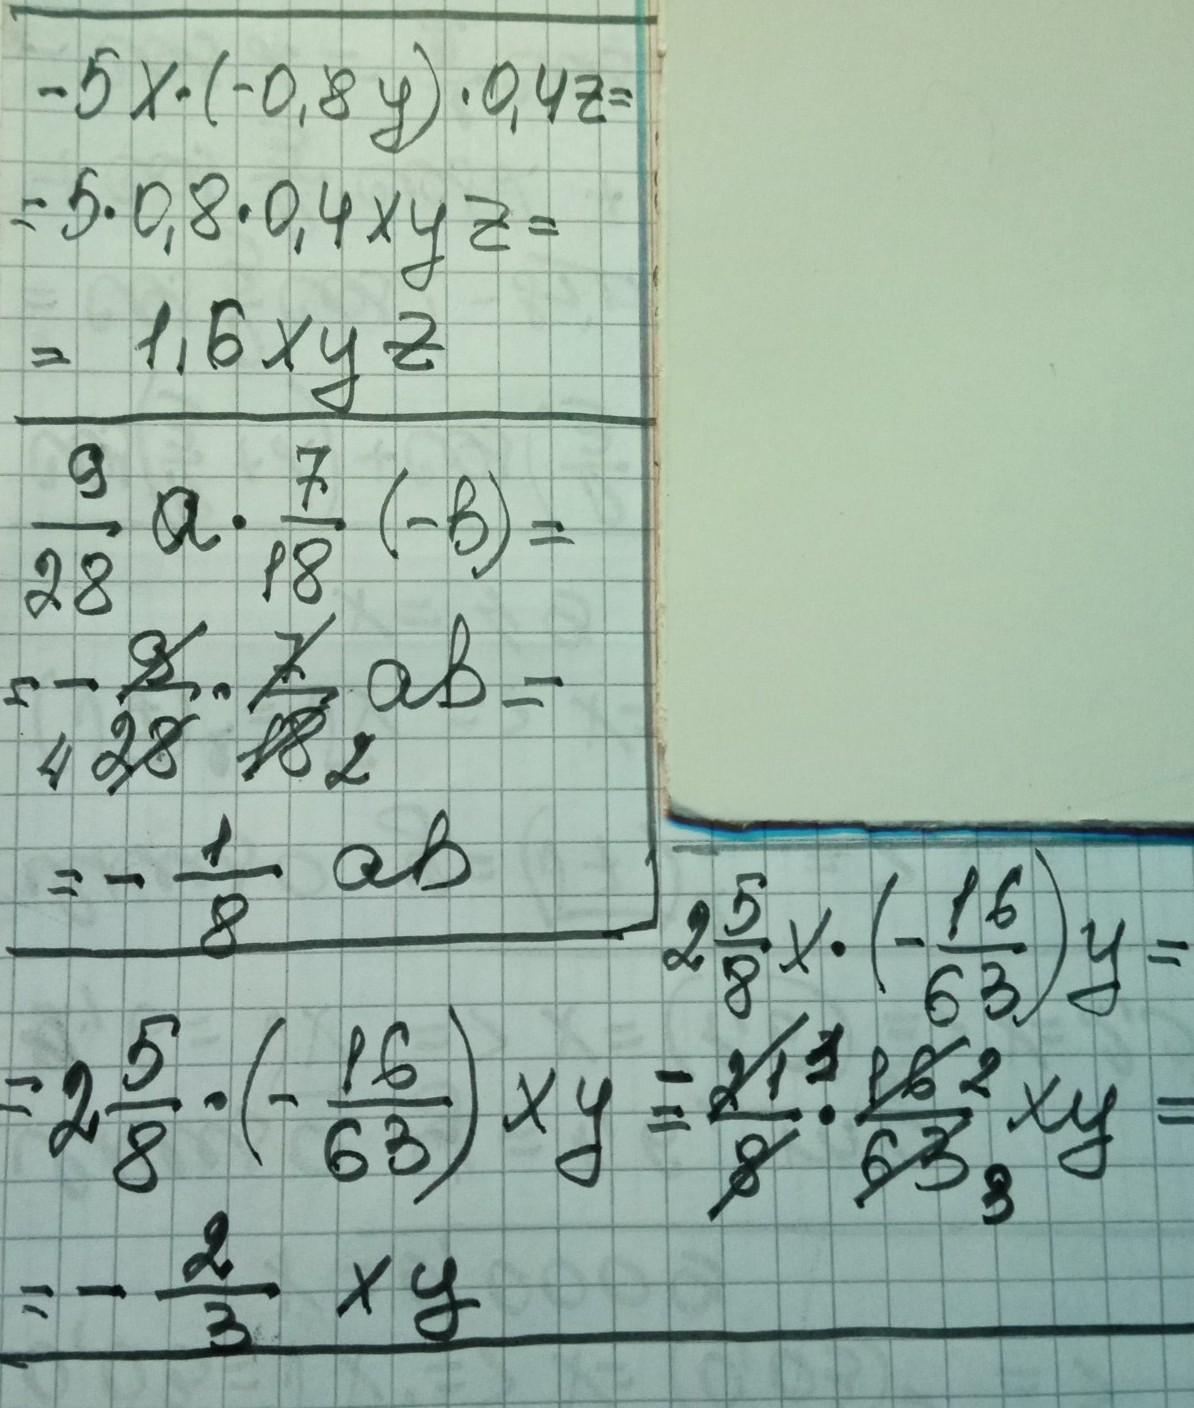 -5x·(-0,8y)·0,4z=
=5·0,8·0,4xyz=
= 1,6xyz
9/28 a · 7/18 (-b) =
=- 9/28 · 7/18 ab =
4 2
=- 1/8 ab
2 5/8 x · (- 16/63) y =
= 2 5/8 · (- 16/63) xy = - 21/8 · 16/63 xy =
2
3
= - 2/3 xy